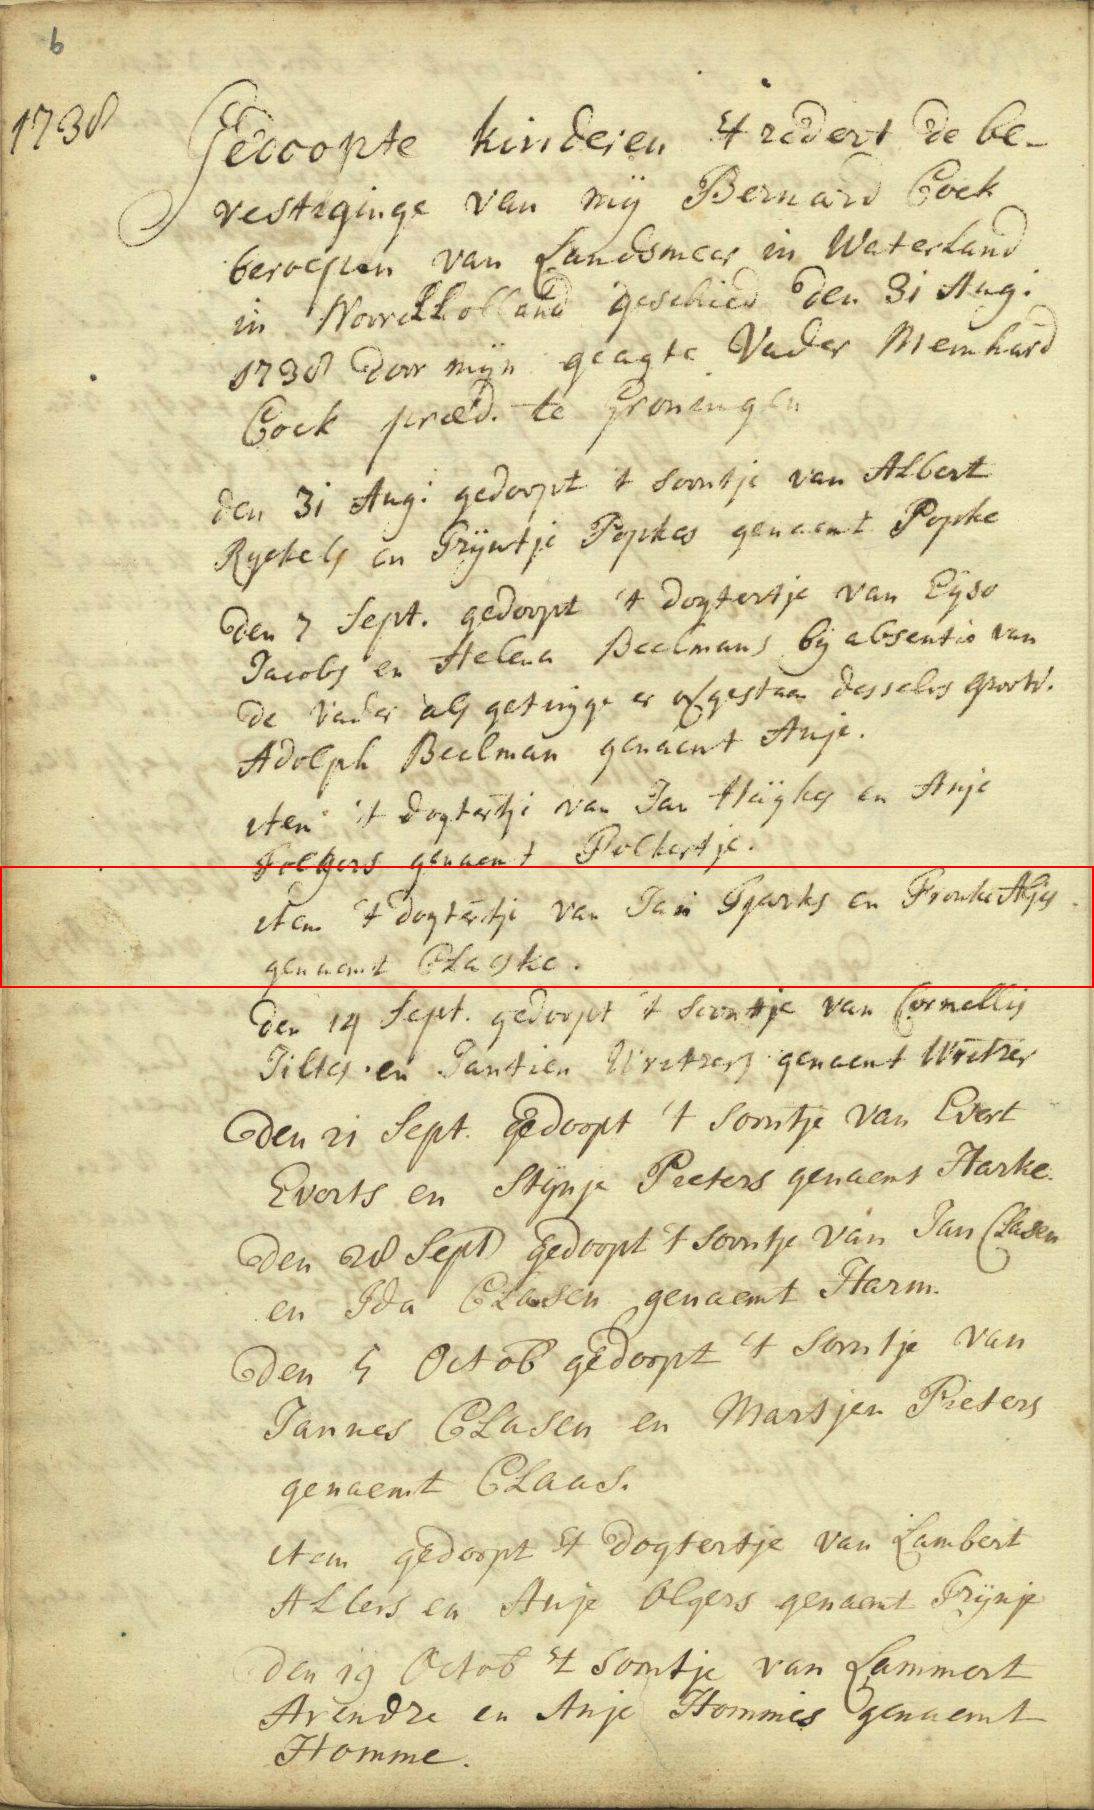 6
1738
Gedoopte kinderen 't zedert de be-
vestiginge van mij Bernard Cock
beroepen van Landsmeer in Waterland
in Noordholland geschied den 31 Aug:
1738 door mijn geagte Vader Meinhard
Cock præd. te Groningen
den 31 Aug: gedoopt 't soontje van Albert
en Trijntje Popkes genaemt Popke
Den 7 Sept. gedoopt 't dogtertje van Eijso
Jacobs en Helena Beelmans bij absentie van
de Vader als getuijge er gestaan desselvs grootv.
Adolph Beelman genaemt Anje.
item 't dogtertje van Jan Haijkes en Anje
Folgers genaemt Folkertje.
item 't dogtertje van Jan Tjarks en Frouke
genaemt Claeske.
den 14 Sept. gedoopt 't soontje van Cornellis
Jiltes en Jantien Writzers genaemt Writzer
Den 21 Sept. gedoopt 't soontje van Evert
Everts en Stijnje Pieters genaemt Harke.
Den 28 Sept gedoopt 't soontje van Jan Clasen
en Ida Clasen genaemt Harm.
Den 5 Octob gedoopt 't soontje van
Jannes Clasen en Martjen Pieters
genaemt Claas.
item gedoopt 't dogtertje van Lambert
Allers en Anje Olgers genaemt Trijnje
den 19 Octob 't soontje van Lammert
Arendze en Anje Hommes genaemt
Homme.